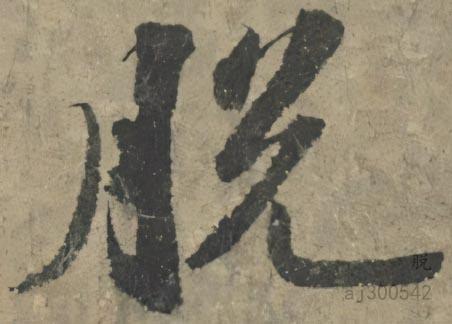 脱
脱
aj300542